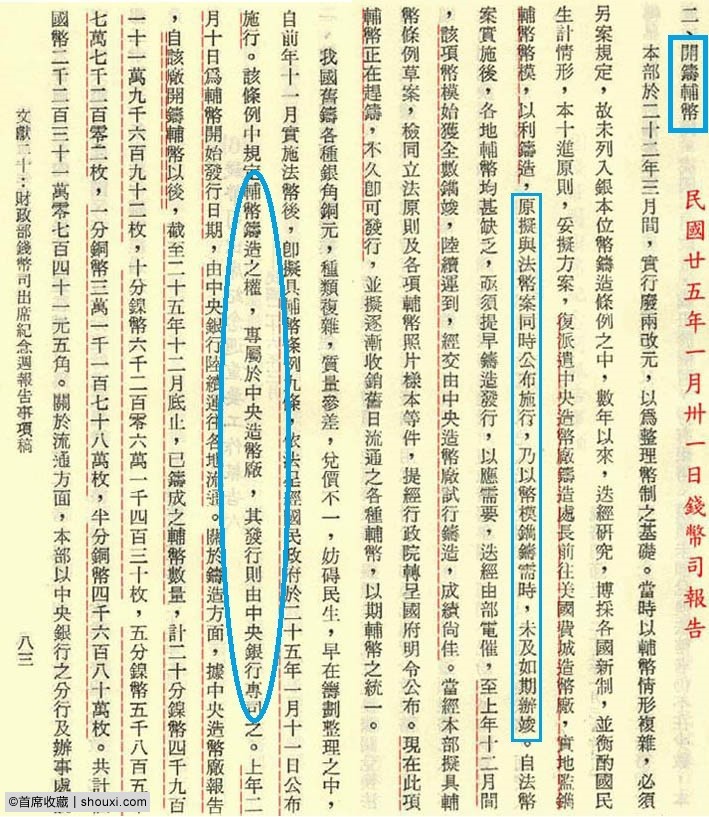 民國廿五年一月卅一日錢幣司報告
二、開鑄輔幣
本部於二十二年三月間，實行廢兩改元，以爲整理幣制之基礎。當時以輔幣情形複雜，必須
另案規定，故未列入銀本位幣鑄造條例之中，數年以來，迭經研究，博採各國新制，並衡酌國民
生計情形，本十進原則，妥擬方案，復派遣中央造幣廠鑄造處長前往美國費城造幣廠，實地監鐫
輔幣幣模，以利鑄造，原擬與法幣案同時公布施行，乃以幣模鐫鑄需時，未及如期辦竣。自法幣
案實施後，各地輔幣均甚缺乏，亟須提早鑄造發行，以應需要，迭經由部電催，至上年十二月間
，該項幣模始獲全數鐫竣，陸續運到，經交由中央造幣廠試行鑄造，成績尚佳。當經本部擬具輔
幣條例草案，檢同立法原則及各項輔幣照片樣本等件，提經行政院轉呈國府明令公布。現在此項
輔幣正在趕鑄，不久卽可發行，並擬逐漸收銷舊日流通之各種輔幣，以期輔幣之統一。
我國舊鑄各種銀角銅元，種類複雜，質量參差，兌價不一，妨碍民生，早在籌劃整理之中，
自前年十一月實施法幣後，卽擬具輔幣條例九條，依法呈經國民政府於二十五年一月十一日公布
施行。該條例中規定輔幣鑄造之權，專屬於中央造幣廠，其發行則由中央銀行專司之。上年二
月十日爲輔幣開始發行日期，由中央銀行陸續運往各地流通。關於鑄造方面，據中央造幣廠報告
，自該廠開鑄輔幣以後，截至二十五年十二月底止，已鑄成之輔幣數量，計二十分鎳幣四千九百
一十一萬九千六百九十二枚，十分鎳幣六千二百零六萬一千四百三十枚，五分鎳幣五千八百五十
七萬七千二百零二枚，一分銅幣三萬一千一百七十八萬枚，半分銅幣四千六百八十萬枚。共計
國幣二千二百三十一萬零七百四十一元五角。關於流通方面，本部以中央銀行之分行及辦事處
文獻二十：財政部錢幣司出席紀念週報告事項稿
八三
©首席收藏 | shouxi.com